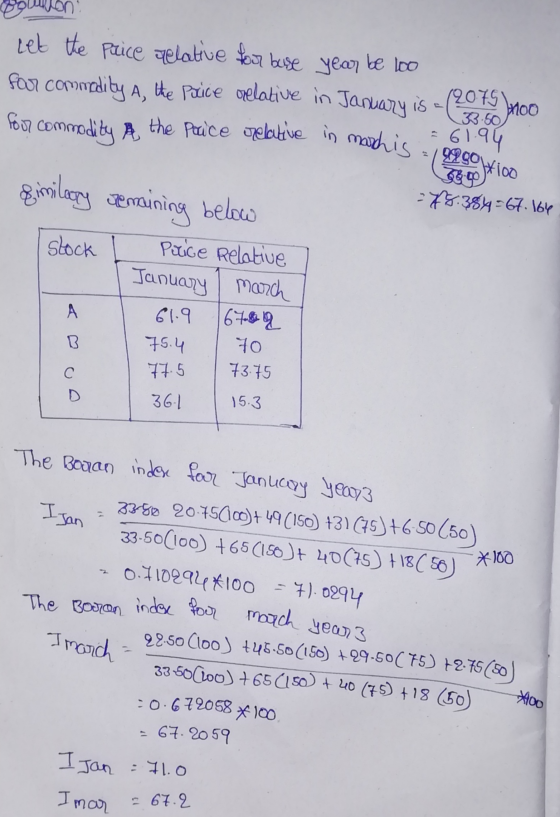 Solution:
Let the Price relative for base year be 100
For commodity A, the Price relative in January is = (2075/33.50)*100
= 61.94
For commodity A the Price relative in march is = (2250/33.50)*100
= 75.384 = 67.164
Similary remaining below
Stock Price Relative
January March
A 61.9 67.2
B 75.4 70
C 77.5 73.75
D 36.1 15.3
The Boran index for January year3
I Jan = 20.75(100)+49(150)+31(75)+6.50(50) / 33.50(100)+65(150)+40(75)+18(50) *100
= 0.710294*100 = 71.0294
The Booran index for march year3
I march = 22.50(100)+45.50(150)+29.50(75)+2.75(50) / 33.50(100)+65(150)+40(75)+18(50) *100
= 0.672058*100
= 67.2059
I Jan = 71.0
I mar = 67.2